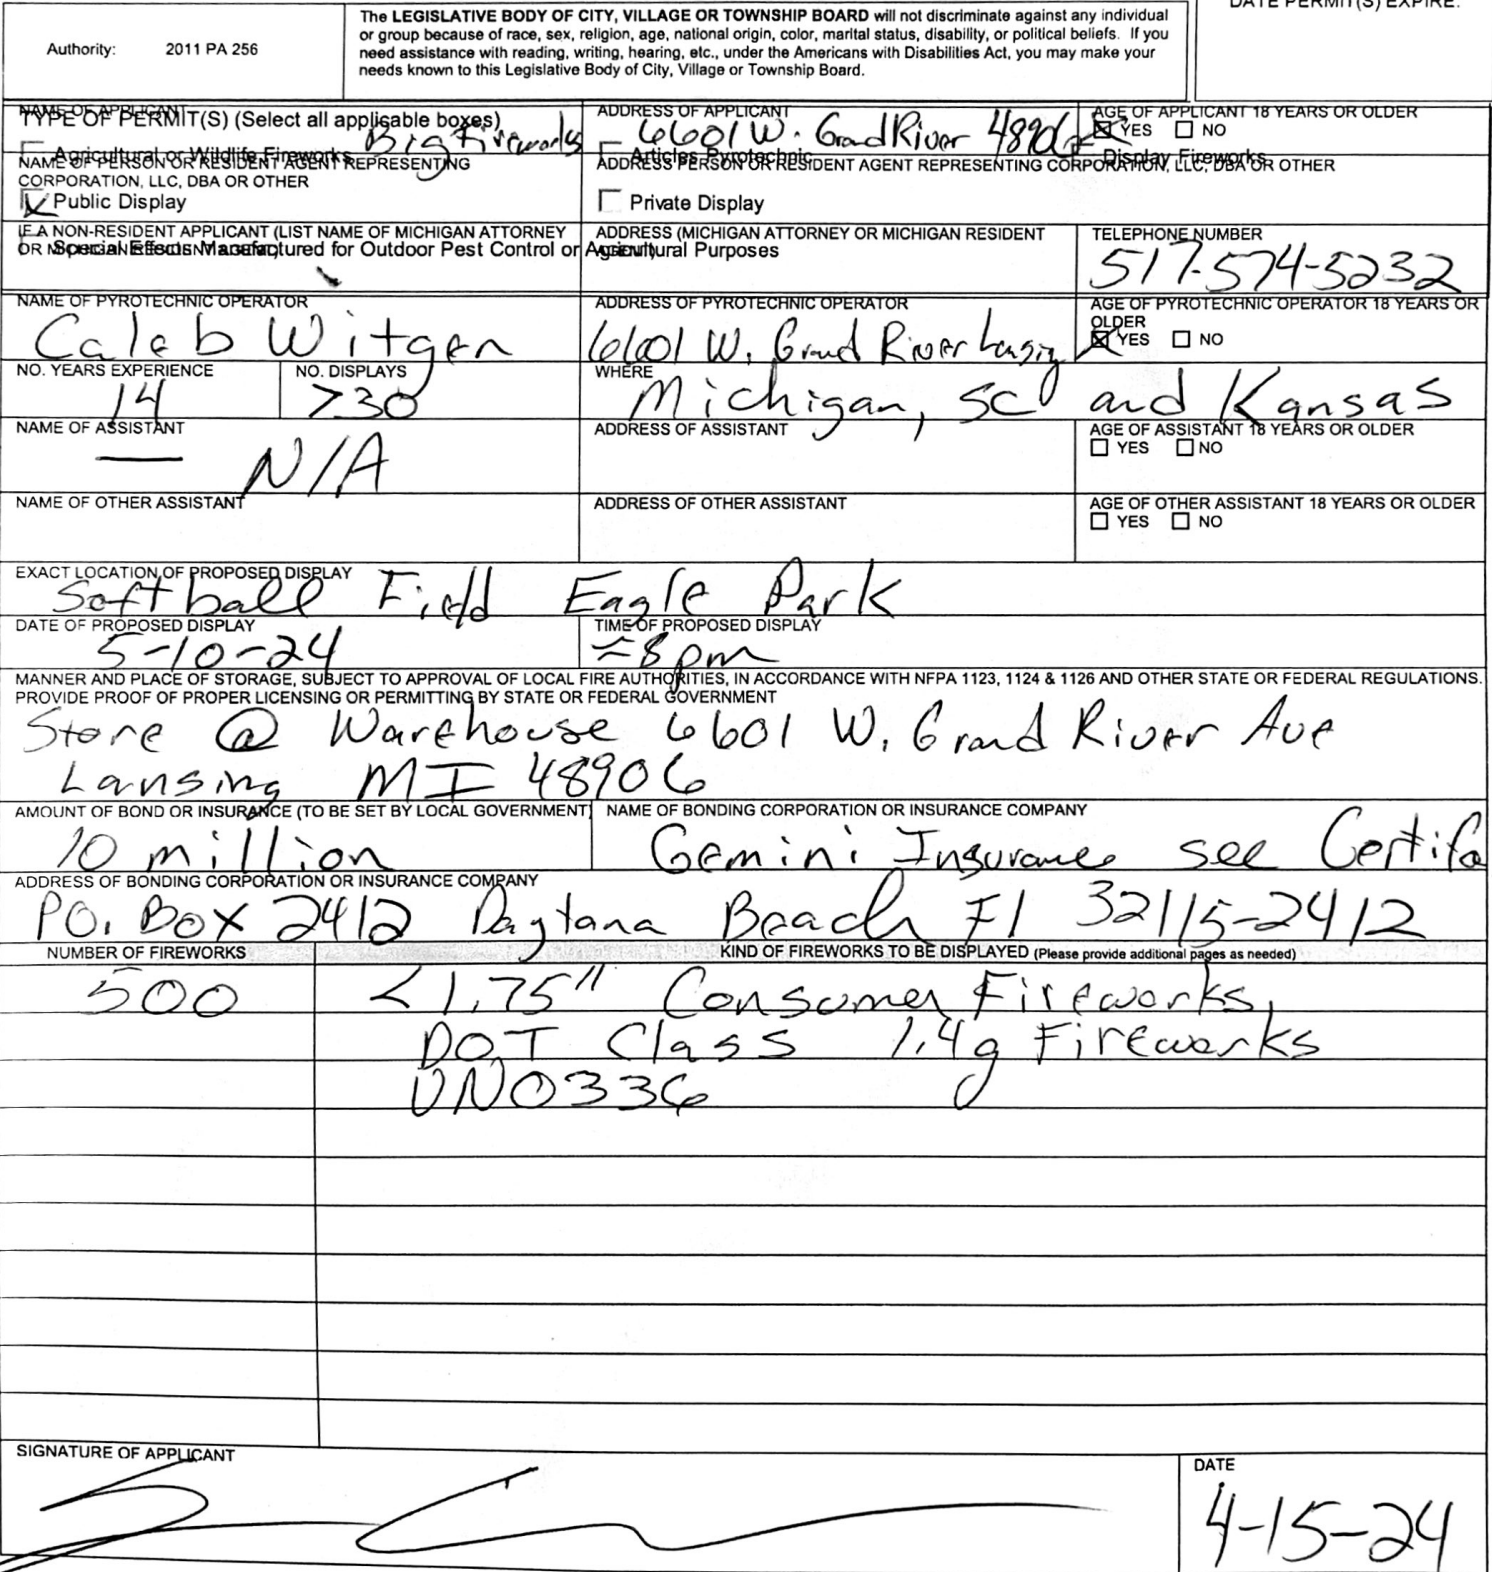 DATE PERMIT(S) EXPIRE:
Authority: 2011 PA 256
The LEGISLATIVE BODY OF CITY, VILLAGE OR TOWNSHIP BOARD will not discriminate against any individual
or group because of race, sex, religion, age, national origin, color, marital status, disability, or political beliefs. If you
need assistance with reading, writing, hearing, etc., under the Americans with Disabilities Act, you may make your
needs known to this Legislative Body of City, Village or Township Board.
NAME OF APPLICANT
TYPE OF PERMIT(S) (Select all applicable boxes)
Big Fireworks
ADDRESS OF APPLICANT
6601 W. Grand River 48906
AGE OF APPLICANT 18 YEARS OR OLDER
YES NO
Agricultural or Wildlife Fireworks
Articles Pyrotechnic
Display Fireworks
NAME OF PERSON OR RESIDENT AGENT REPRESENTING
CORPORATION, LLC, DBA OR OTHER
ADDRESS PERSON OR RESIDENT AGENT REPRESENTING CORPORATION, LLC, DBA OR OTHER
Public Display
Private Display
IF A NON-RESIDENT APPLICANT (LIST NAME OF MICHIGAN ATTORNEY
ADDRESS (MICHIGAN ATTORNEY OR MICHIGAN RESIDENT
Special Effects Manufactured for Outdoor Pest Control or Agricultural Purposes
TELEPHONE NUMBER
517-574-5232
NAME OF PYROTECHNIC OPERATOR
Caleb Witgen
ADDRESS OF PYROTECHNIC OPERATOR
6601 W. Grand River Lansing
AGE OF PYROTECHNIC OPERATOR 18 YEARS OR
OLDER
YES NO
NO. YEARS EXPERIENCE
14
NO. DISPLAYS
>30
WHERE
Michigan, SC and Kansas
NAME OF ASSISTANT
— N/A
ADDRESS OF ASSISTANT
AGE OF ASSISTANT 18 YEARS OR OLDER
YES NO
NAME OF OTHER ASSISTANT
ADDRESS OF OTHER ASSISTANT
AGE OF OTHER ASSISTANT 18 YEARS OR OLDER
YES NO
EXACT LOCATION OF PROPOSED DISPLAY
Softball Field Eagle Park
DATE OF PROPOSED DISPLAY
5-10-24
TIME OF PROPOSED DISPLAY
≈8pm
MANNER AND PLACE OF STORAGE, SUBJECT TO APPROVAL OF LOCAL FIRE AUTHORITIES, IN ACCORDANCE WITH NFPA 1123, 1124 & 1126 AND OTHER STATE OR FEDERAL REGULATIONS.
PROVIDE PROOF OF PROPER LICENSING OR PERMITTING BY STATE OR FEDERAL GOVERNMENT
Store @ Warehouse 6601 W. Grand River Ave
Lansing MI 48906
AMOUNT OF BOND OR INSURANCE (TO BE SET BY LOCAL GOVERNMENT)
10 million
NAME OF BONDING CORPORATION OR INSURANCE COMPANY
Gemini Insurance see Certifa
ADDRESS OF BONDING CORPORATION OR INSURANCE COMPANY
PO. Box 2412 Daytana Beach Fl 32115-2412
NUMBER OF FIREWORKS
KIND OF FIREWORKS TO BE DISPLAYED (Please provide additional pages as needed)
500 <1.75" Consumer Fireworks,
DOT Class 1.4g Fireworks
UN0336
SIGNATURE OF APPLICANT
DATE
4-15-24